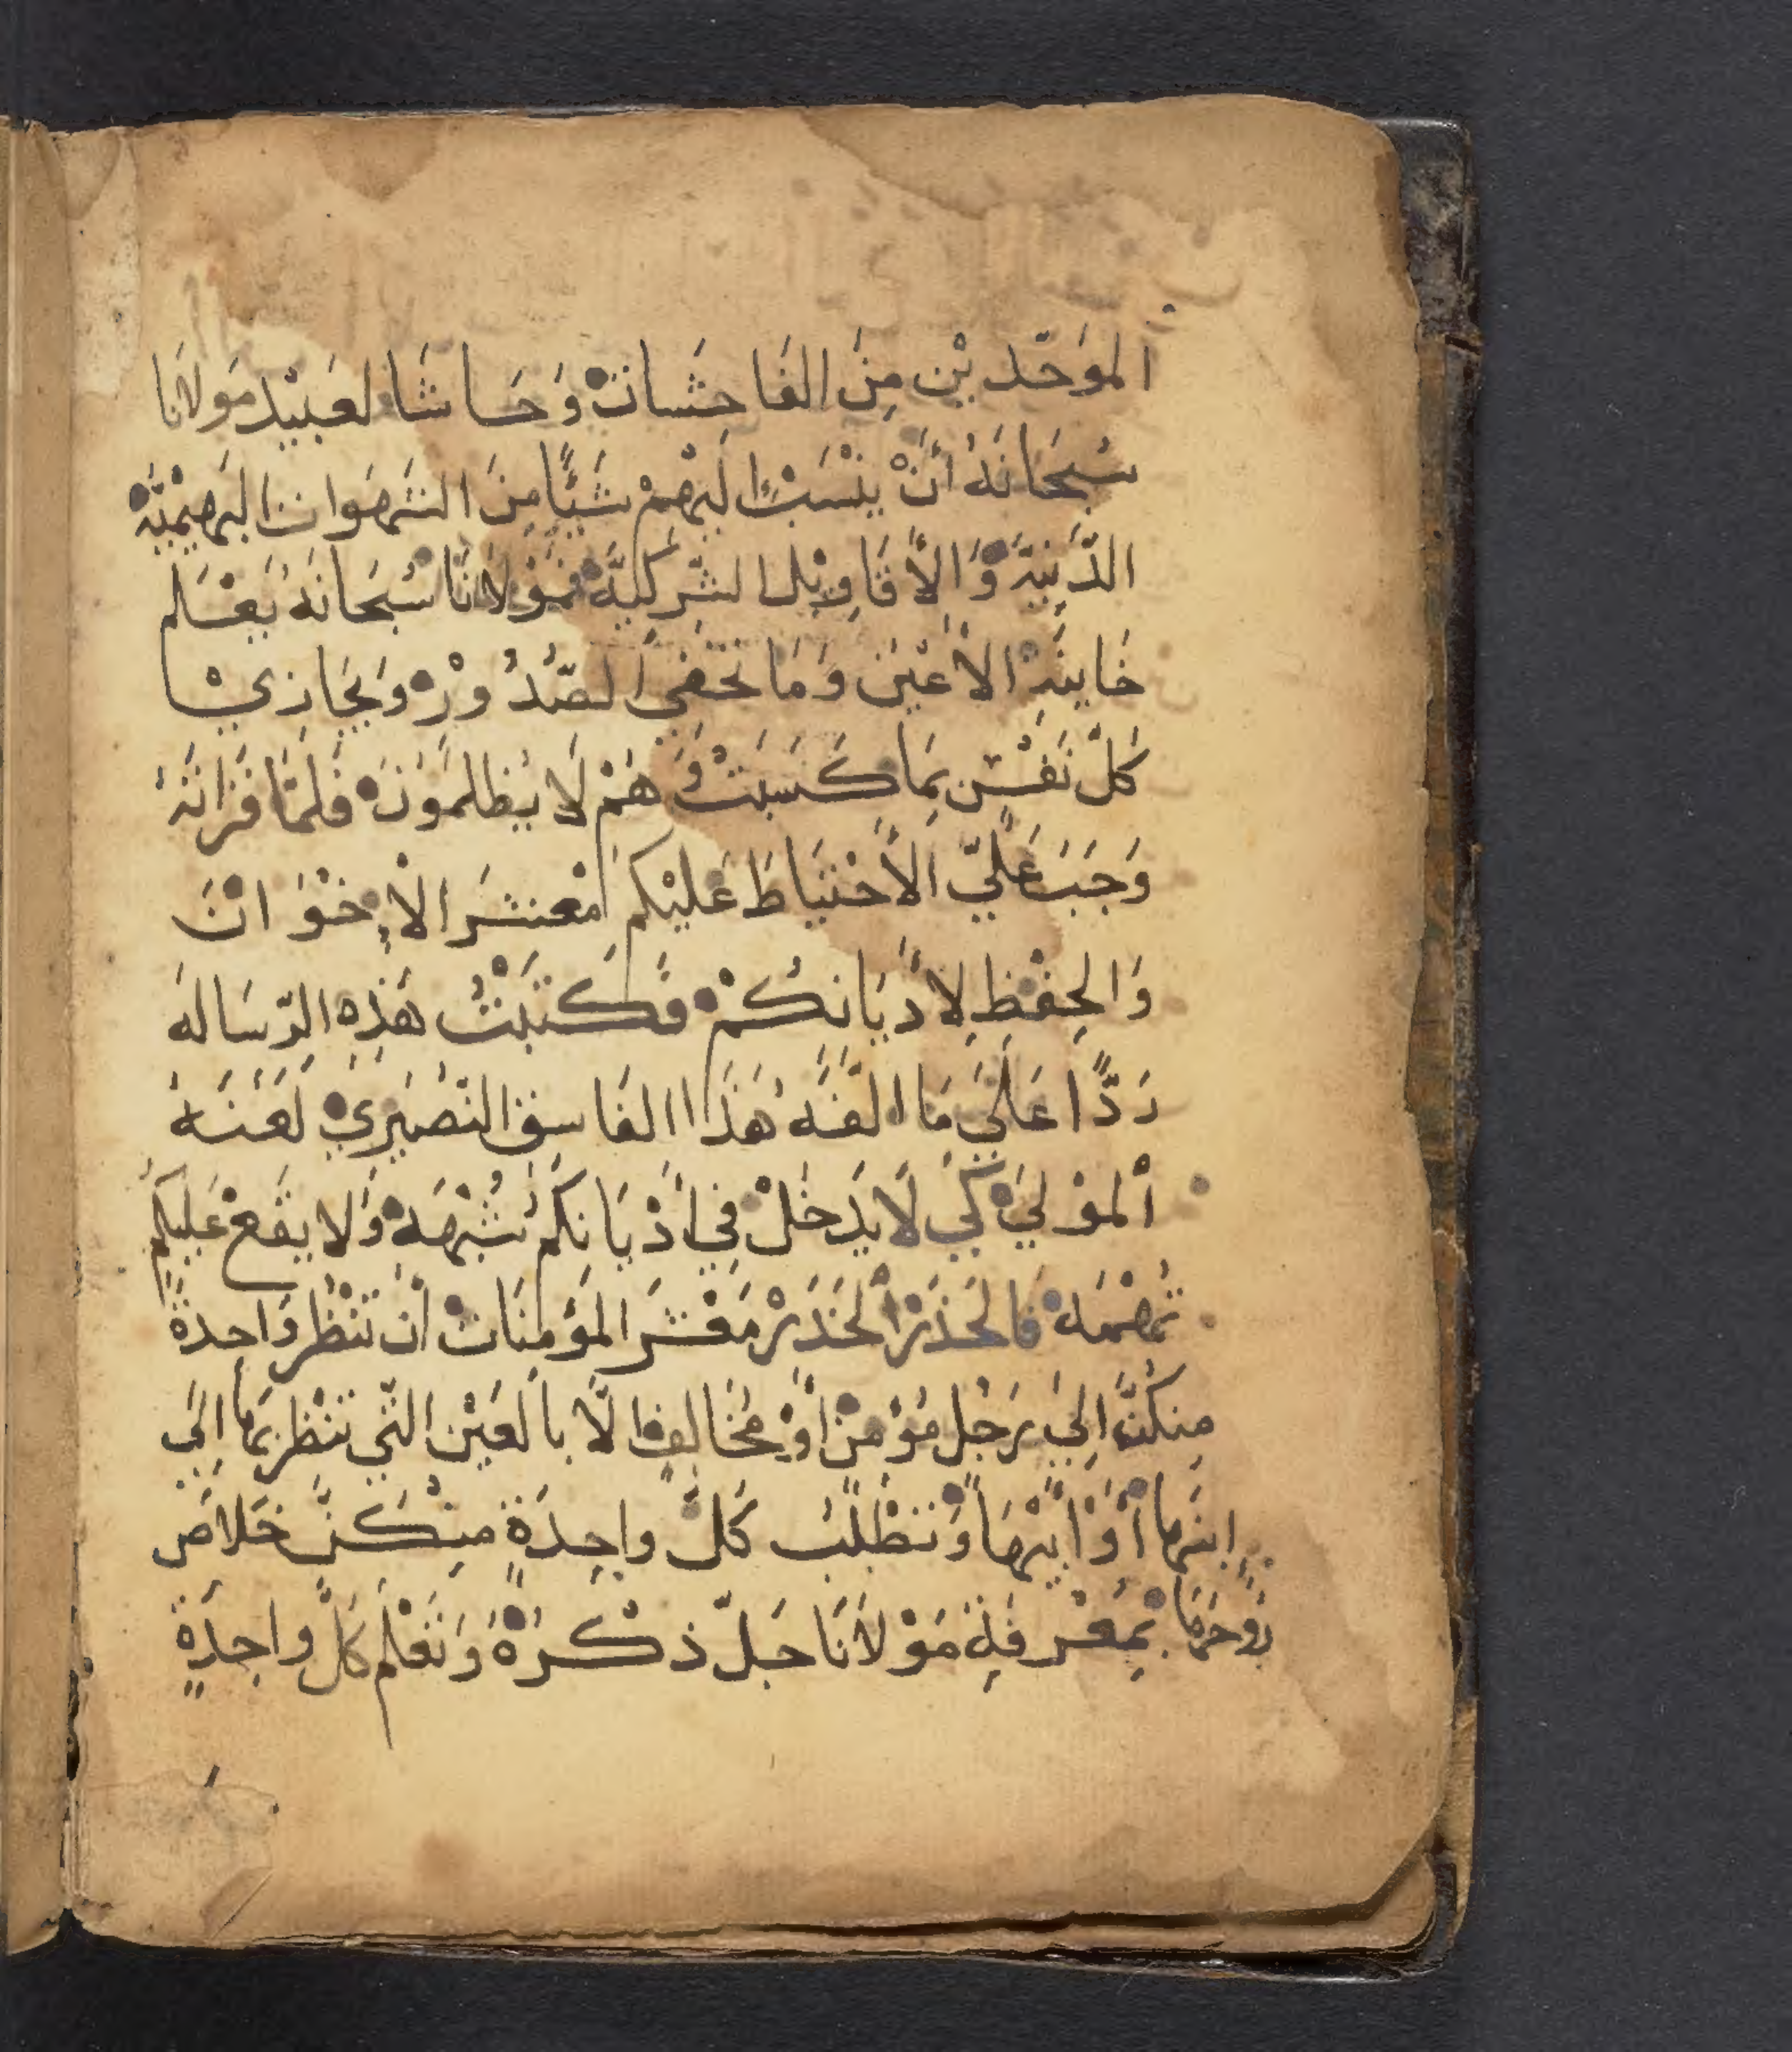 الموَحّديْن مِنَ الفَاحِشَاتْ وَحَاشَا لعَبيْد مَولانَا
سُبحَانَهُ أنْ ينْسَبْ اليْهِمْ شَيئًا مِنَ الشَهَوات البَهِيْميَّهْ
الدَّنِيَّهْ وَالأقَاوِيْل الشِّركيَّهْ فمَوْلانَا سُبحَانَهُ يَعْلم
خَاينَهْ الأعْيَن وَمَا تَخْفي الصّدُورْ وَيجَازيْ
كَلّ نَفْسٍ بِمَا كَسَبَتْ وَهُمْ لَا يُظلمَونَ فلمَّا قَرَاتَهُ
وَجَبَ عَليّ الأحْتيَاطَ عَليْكم مَعْشَرَ الإخْوَانَ
وَالحِفْظِ لِأدْيَانِكُمْ فَكَتَبْتُ هَذِهِ الرّسَاله
رَدًّا عَلَي مَا الّفَهُ هَذَا الفَاسق النّصَيْري لَعَنَهُ
ألموْلَي كَي لَا يَدخُلْ فِي أدْيَانِكُم شُبْهَه وَلا يقَعْ عَليكم
تُهْمَه فَالحَذَرْ ألحَذَرْ مَعْشَرَ المَؤمنَاتْ أن تنْظُر وَاحدةً
مِنكُنَّ الِيَ رَجُل مُؤْمنْ أوْ مُخَالفٍ الّا بالعَيْن التّي تنْظر بهَا الَي
ابنَها أوْ أبيْهَا وَتطْلُبُ كَلّ واحِدَةٍ منْكنَّ خَلاصَ
رُوحَهَا بِمَعْرفَةِ مَوْلانَا جَلّ ذكْرَهْ وَتعْلم كَلّ واحِدَةٍ